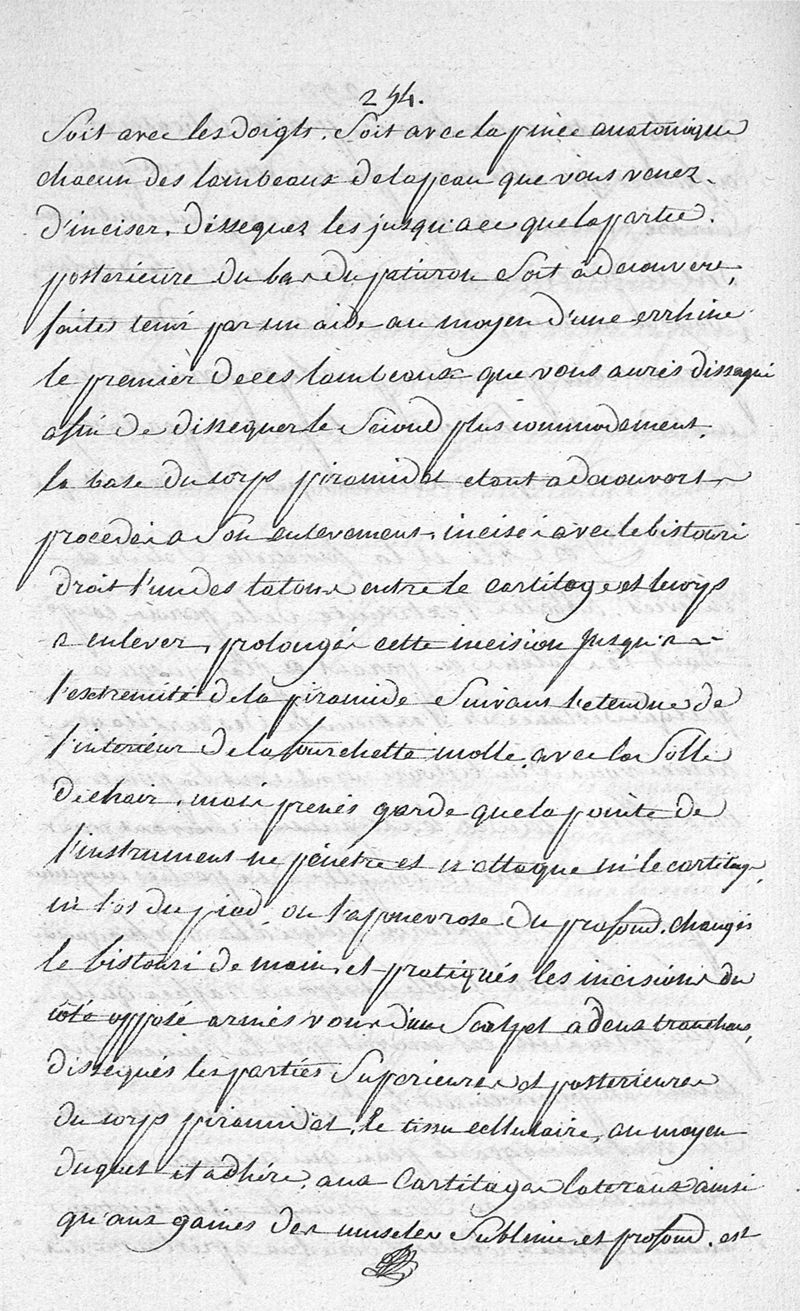 254.
Soit avec les doigts. Soit avec la pince anatomique
chacun des lambeaux de la peau que vous venez.
d'inciser. dissequez les jusqu'a ce que la partie.
posterieure du bas du paturon Soit a decouvert,
faites tenir par un aide au moyen d'une errhine
le premièr de ces lambeaux que vous aurés dissequé
afin de dissequer le Second plus commodement.
la base du corps piramidal etant a decouvert
procedéz a Son enlevement, incisez avec le bistouri
droit l'un des talons entre le cartilage et le corps
a enlever, prolongés cette incision jusqu'a
l'extremité de la piramide Suivans l'etendue de
l'interieur de la fourchette molle, avec la Solle
de chair, mais prenés garde que la pointe de
l'instrument ne pénetre et n'attaque ni le cartilage,
ni l'os du pied, ou l'aponevrose du profond. changés
le bistouri de main, et pratiqués les incisions du
côté opposé armés vous d'un Scalpel a deux tranchans,
disseques les parties Superieures et posterieures
du corps piramidal, le tissu cellulaire, au moyen
duquel il adhére, aux Cartilages lateraux ainsi
qu'aux gaines des muscles Sublime et profond, est